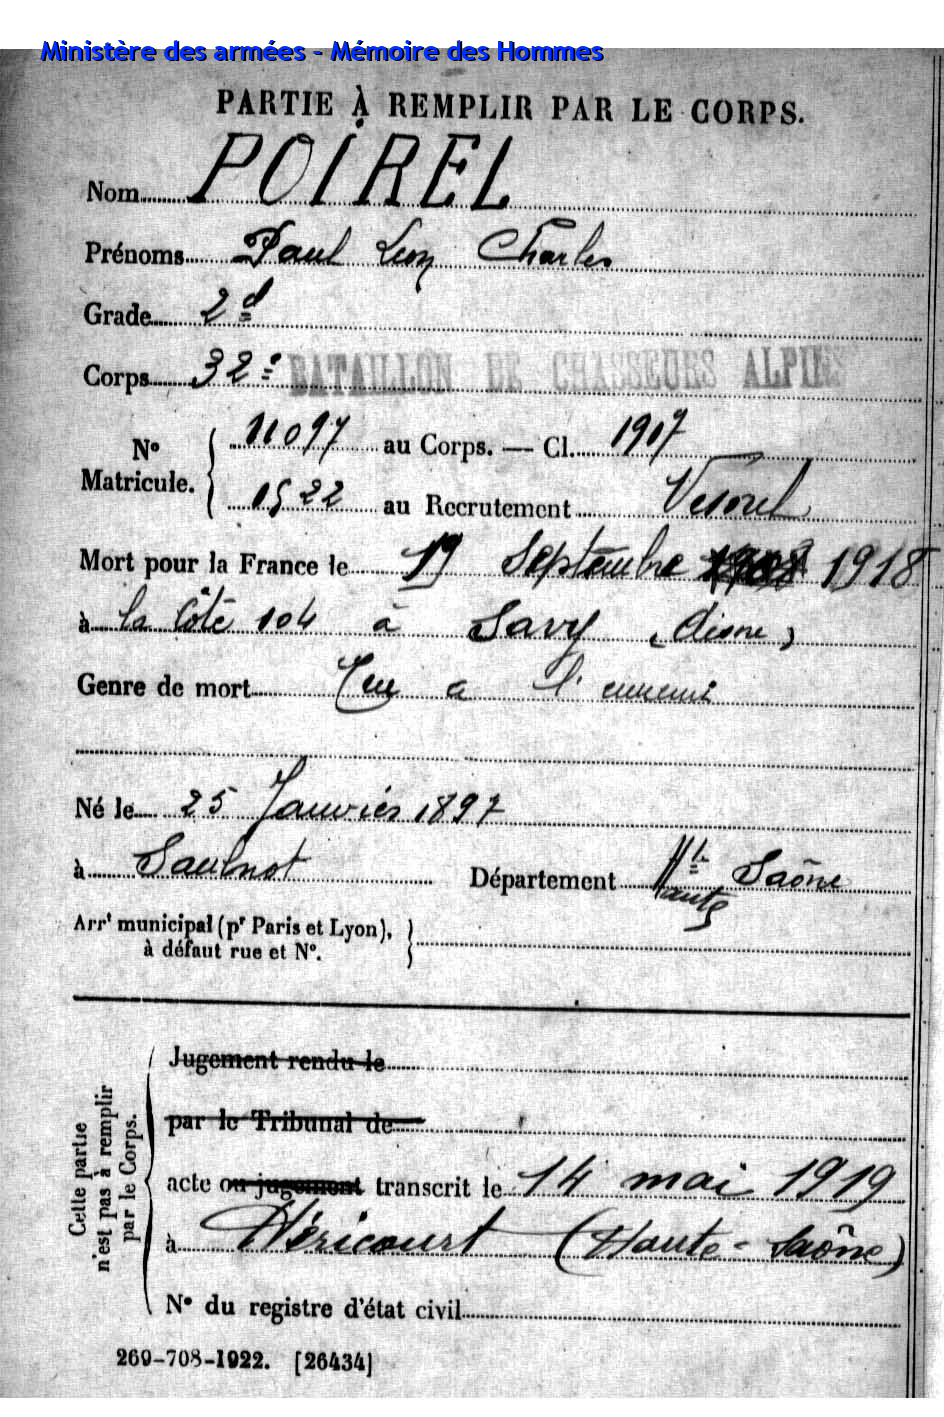 Ministère des armées - Mémoire des Hommes
PARTIE À REMPLIR PAR LE CORPS.
Nom POIREL
Prénoms Paul Léon Charles
Grade 2d
Corps 32e BATAILLON DE CHASSEURS ALPINS
No Matricule. { 11097 au Corps. — Cl. 1917
1522 au Recrutement Vesoul
Mort pour la France le 19 Septembre 1918
à la Côte 104 à Savy (Aisne)
Genre de mort Tué à l'ennemi
Né le 25 Janvier 1897
à Saulnot Département Hte Haute Saône
Arrt municipal (pr Paris et Lyon), }
à défaut rue et No.
Cette partie n'est pas à remplir par le Corps.
Jugement rendu le
par le Tribunal de
acte ou jugement transcrit le 14 mai 1919
à Héricourt (Haute-Saône)
No du registre d'état civil
269-708-1922. [26434]